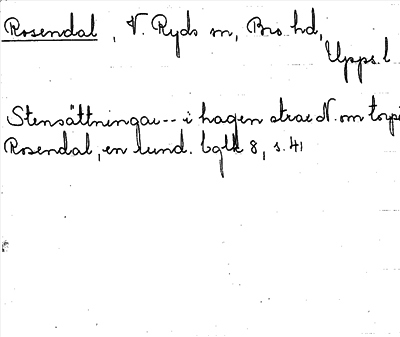 Rosendal, V. Ryds sn, Bro hd,
Upps. l
Stensättningar -- i hagen strax N. om torp
Rosendal, en lund. bgtk 8, s. 41